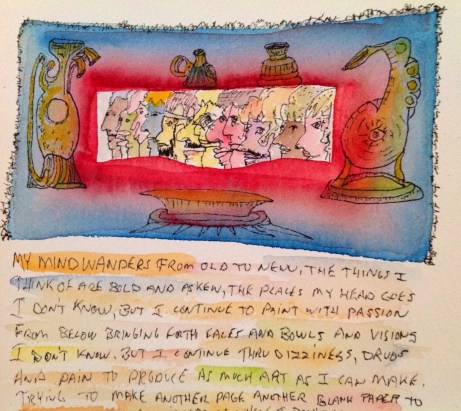 MY MIND WANDERS FROM OLD TO NEW, THE THINGS I
THINK OF ARE BOLD AND ASKEW, THE PLACES MY HEAD GOES
I DON'T KNOW, BUT I CONTINUE TO PAINT WITH PASSION
FROM BELOW BRINGING FORTH FACES AND BOWLS AND VISIONS
I DON'T KNOW. BUT I CONTINUE THRU DIZZINESS, DRUGS
AND PAIN TO PRODUCE AS MUCH ART AS I CAN MAKE.
TRYING TO MAKE ANOTHER PAGE ANOTHER BLANK PAPER TO